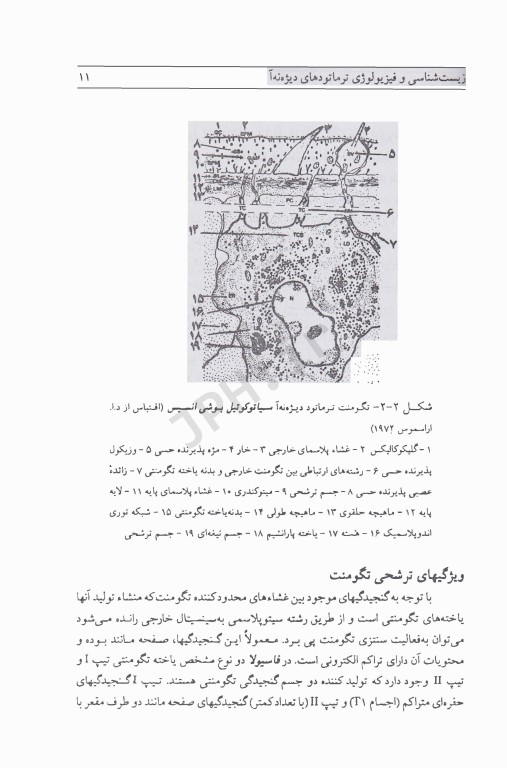 زیست‌شناسی و فیزیولوژی ترماتودهای دیژنه‌آ ۱۱
شکل ۲-۲- تگومنت ترماتود دیژنه‌آ سیاتوکوتیل بوشی انسیس (اقتباس از د.ا.
اراسموس ۱۹۷۲)
۱- گلیکوکالیکس ۲- غشاء پلاسمای خارجی ۳- خار ۴- مژه پذیرنده حسی ۵- وزیکول
پذیرنده حسی ۶- رشته‌های ارتباطی بین تگومنت خارجی و بدنه یاخته تگومنتی ۷- زائدهٔ
عصبی پذیرنده حسی ۸- جسم ترشحی ۹- میتوکندری ۱۰- غشاء پلاسمای پایه ۱۱- لایه
پایه ۱۲- ماهیچه حلقوی ۱۳- ماهیچه طولی ۱۴- بدنه‌یاخته تگومنتی ۱۵- شبکه توری
اندوپلاسمیک ۱۶- هسته ۱۷- یاخته پارانشیم ۱۸- جسم تیغه‌ای ۱۹- جسم ترشحی
ویژگیهای ترشحی تگومنت
با توجه به گنجیدگیهای موجود بین غشاءهای محدودکننده تگومنت که منشاء تولید آنها
یاخته‌های تگومنتی است و از طریق رشته سیتوپلاسمی به‌سینسیتال خارجی رانده می‌شود
می‌توان به‌فعالیت سنتزی تگومنت پی برد. معمولاً این گنجیدگیها، صفحه مانند بوده و
محتویات آن دارای تراکم الکترونی است. در فاسیولا دو نوع مشخص یاخته تگومنتی تیپ I و
تیپ II وجود دارد که تولید کننده دو جسم گنجیدگی تگومنتی هستند. تیپ I گنجیدگیهای
حفره‌ای متراکم (اجسام T۱) و تیپ II (با تعداد کمتر) گنجیدگیهای صفحه مانند دو طرف مقعر با